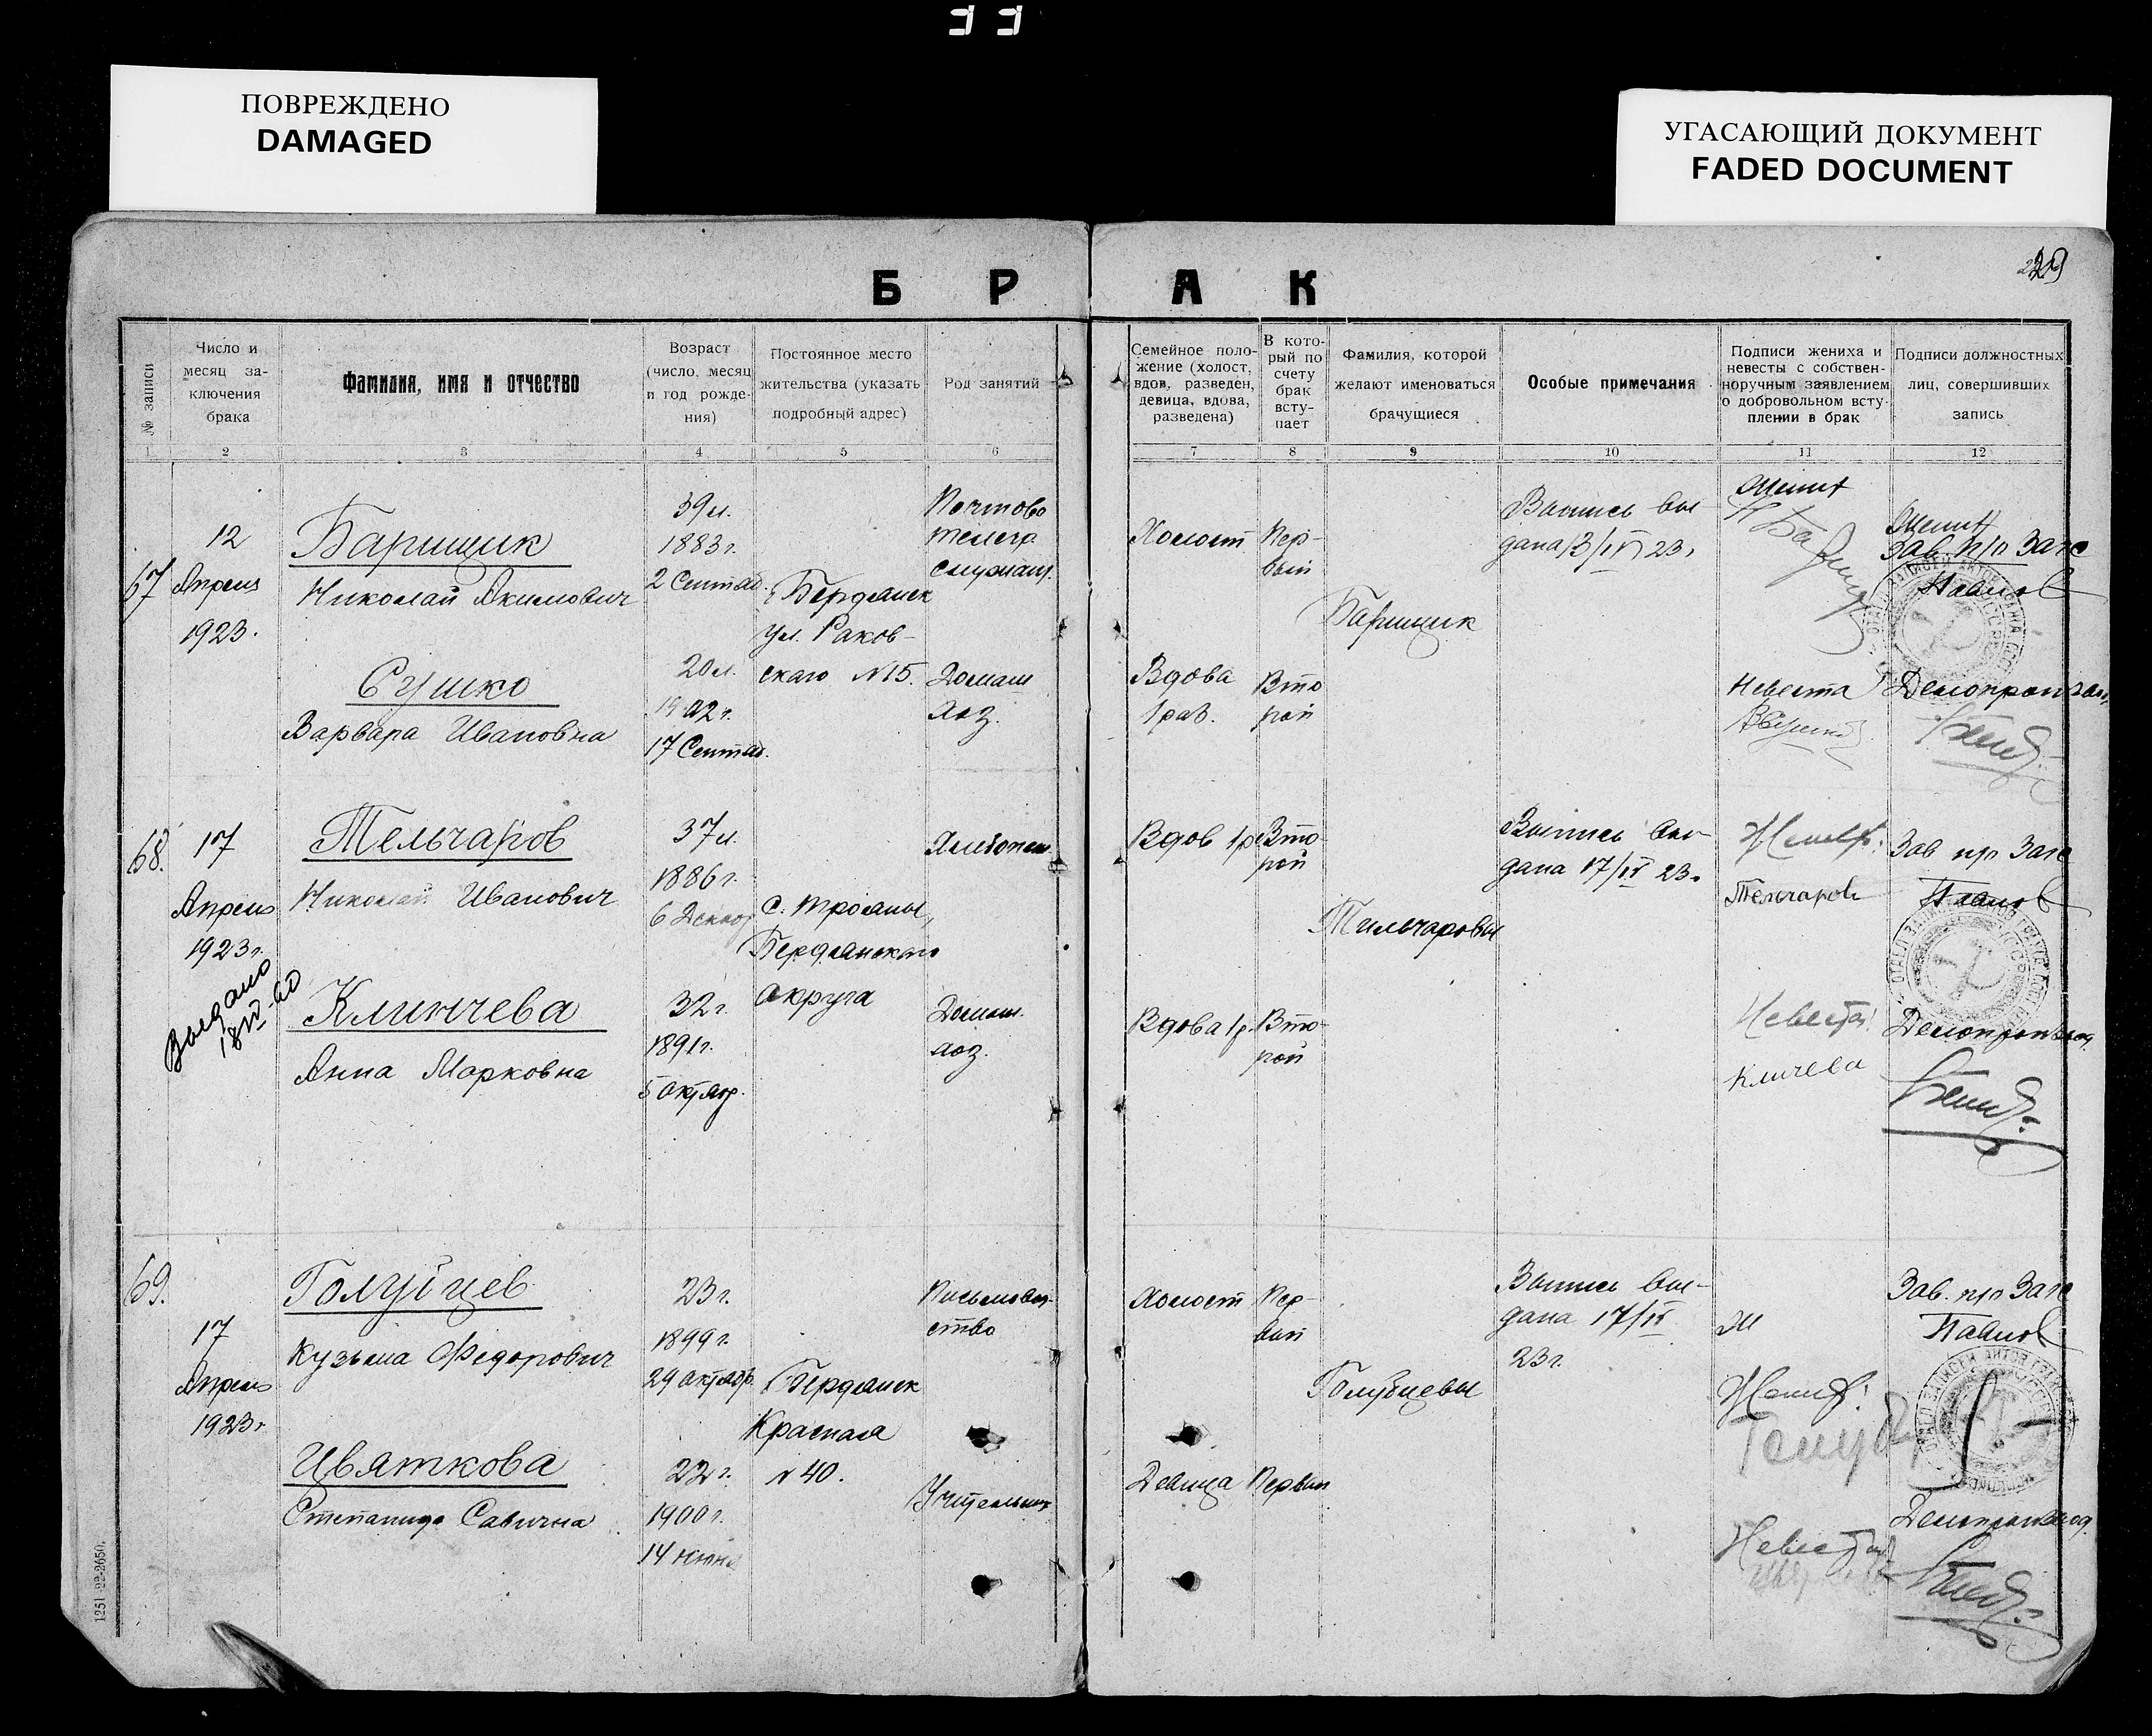 33
ПОВРЕЖДЕНО
DAMAGED
УГАСАЮЩИЙ ДОКУМЕНТ
FADED DOCUMENT
БРАК
№ записи
Число и
месяц за-
ключения
брака
Фамилия, имя и отчество
Возраст
(число, месяц
и год рожде-
ния)
Постоянное место
жительства (указать
подробный адрес)
Род занятий
Семейное поло-
жение (холост,
вдов, разведен,
девица, вдова,
разведена)
В кото-
рый по
счету
брак
всту-
пает
Фамилия, которой
желают именоваться
брачущиеся
Особые примечания
Подписи жениха и
невесты с собствен-
норучным заявлением
о добровольном всту-
плении в брак
Подписи должностных
лиц, совершивших
запись
1 2 3 4 5 6 7 8 9 10 11 12
67
12
Апреля
1923.
Барищик
Николай Акимович
39 л.
1883 г.
2 Сентяб.
Бердянск
ул. Раков-
скаго №15.
Почтово
телегр
служащ.
Холост
Пер-
вый
Барищик
Выпись вы
дана 13/IV 23.
Жених
Зав. п/п Загс
Павлов
Сушко
Варвара Ивановна
20 л.
1902 г.
17 Сентяб.
Домаш
хоз.
Вдова
1 раз.
Вто
рой
Невеста
Делопроизвод.
68.
17
Апреля
1923 г.
Выдано
Тельчаров
Николай Иванович
37 л.
1886 г.
6 Декаб
с. Трояны,
Бердянского
округа
Хлебопаш.
Вдов 1 р.
Вто-
рой
Тильчаровы
Выпись вы-
дана 17/IV 23.
Жених:
Тельчаров
Зав п/п Загс
Павлов
Клинчева
Анна Марковна
32 г.
1891 г.
5 Октяб.
Домаш.
хоз.
Вдова 1 р.
Вто-
рой
Невеста:
Кличева
Делопроизвод.
69.
17
Апреля
1923 г.
Голубцев
Кузьма Федорович
23 г.
1899 г.
29 Октябр.
Бердянск
Красная
№ 40.
Письмовод-
ство
Холост
Пер-
вый
Голубцевы
Выпись вы-
дана 17/IV
23 г.
Ж
Жених:
Голуб
Зав. п/п Загс
Павлов
Цвяткова
Степанида Савична
22 г.
1900 г.
14 Июня
Учительни
Девица
Первый
Невеста
Делопроизвод.
1251-22-2650.